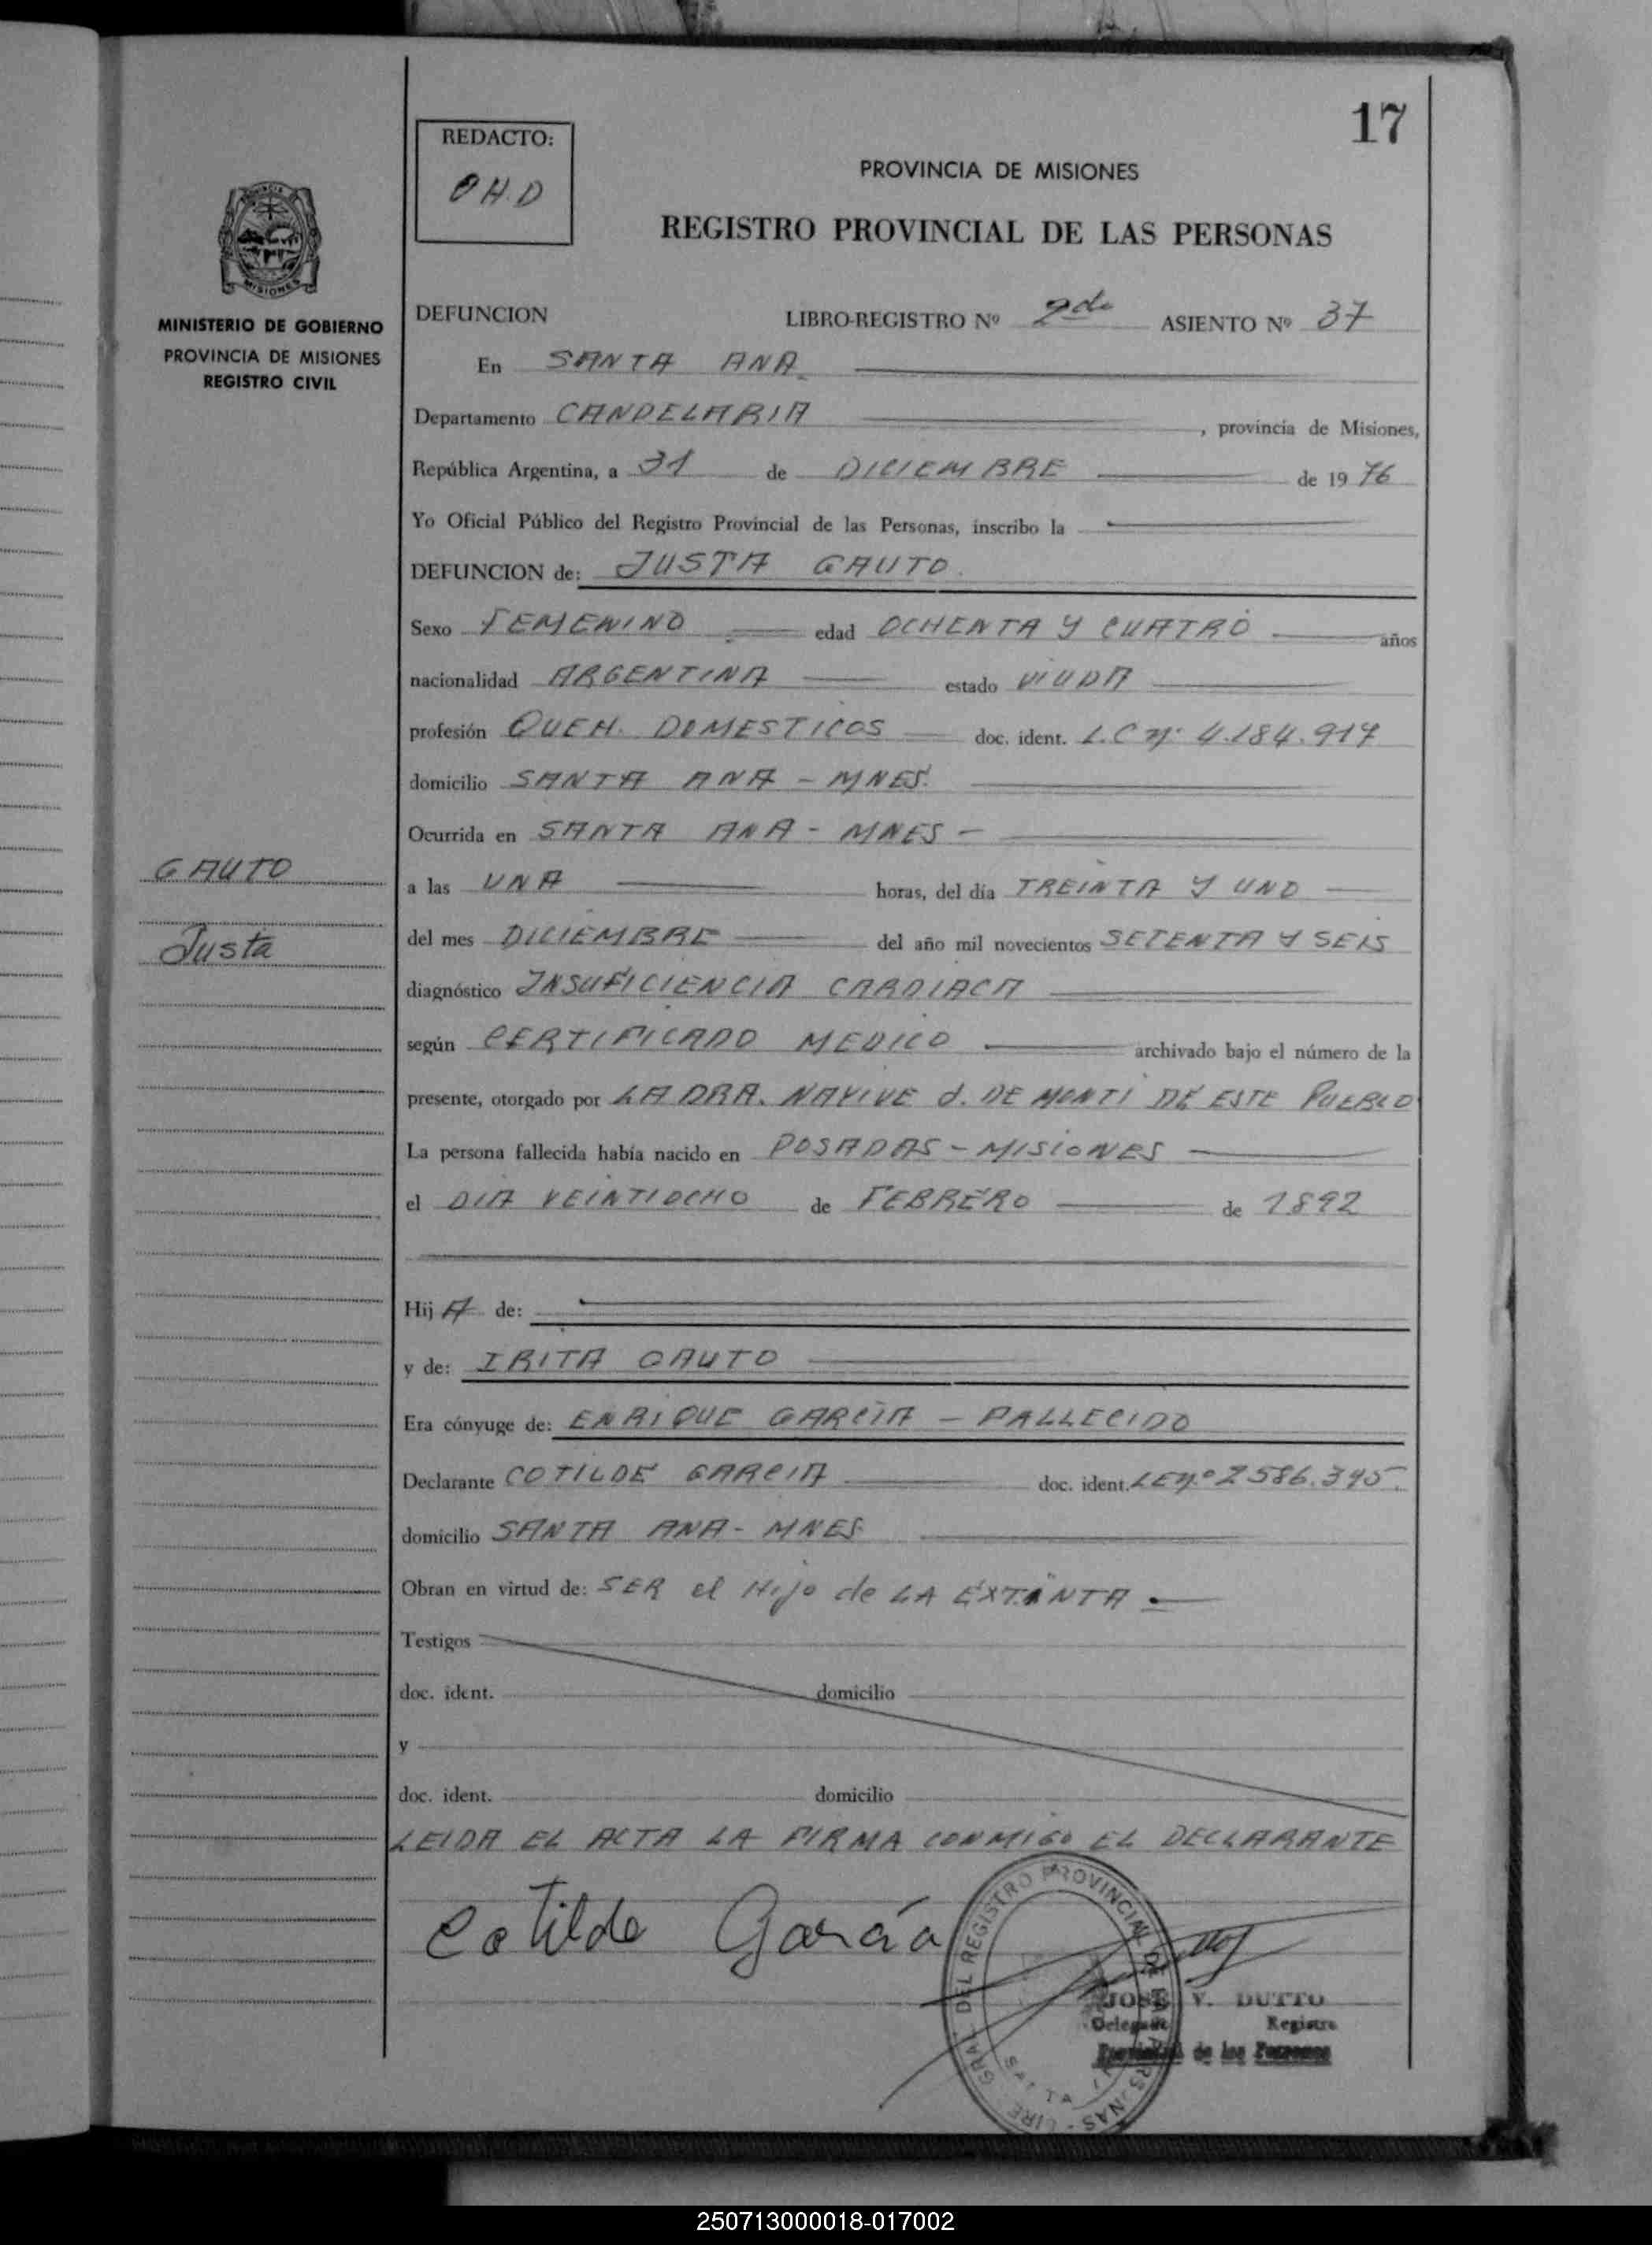 17
REDACTO:
O H. D
PROVINCIA DE MISIONES
REGISTRO PROVINCIAL DE LAS PERSONAS
MINISTERIO DE GOBIERNO
PROVINCIA DE MISIONES
REGISTRO CIVIL
DEFUNCION LIBRO-REGISTRO Nº 2do ASIENTO Nº 37
En SANTA ANA
Departamento CANDELARIA , provincia de Misiones,
República Argentina, a 31 de DICIEMBRE de 19 76
Yo Oficial Público del Registro Provincial de las Personas, inscribo la
DEFUNCION de: JUSTA GAUTO.
Sexo FEMENINO edad OCHENTA Y CUATRO años
nacionalidad ARGENTINA estado VIUDA
profesión QUEH. DOMESTICOS doc. ident. L.C nº 4.184.917
domicilio SANTA ANA - MNES.
Ocurrida en SANTA ANA - MNES -
GAUTO
Justa
a las UNA horas, del día TREINTA Y UNO
del mes DICIEMBRE del año mil novecientos SETENTA Y SEIS
diagnóstico INSUFICIENCIA CARDIACA
según CERTIFICADO MEDICO archivado bajo el número de la
presente, otorgado por LA DRA. NAVIVE d. DE MONTI DE ESTE PUEBLO
La persona fallecida había nacido en POSADAS - MISIONES
el DIA VEINTIOCHO de FEBRERO de 1892
Hij A de:
y de: IRITA GAUTO
Era cónyuge de: ENRIQUE GARCÍA - FALLECIDO
Declarante COTILDE GARCIA doc. ident. LE nº 2586.395.
domicilio SANTA ANA - MNES
Obran en virtud de: SER el Hijo de LA EXTINTA.
Testigos
doc. ident. domicilio
y
doc. ident. domicilio
LEIDA EL ACTA LA FIRMA CONMIGO EL DECLARANTE
Cotilde García
JOSE V. DUTTO
Delegado Registro
Provincial de las Personas
250713000018-017002